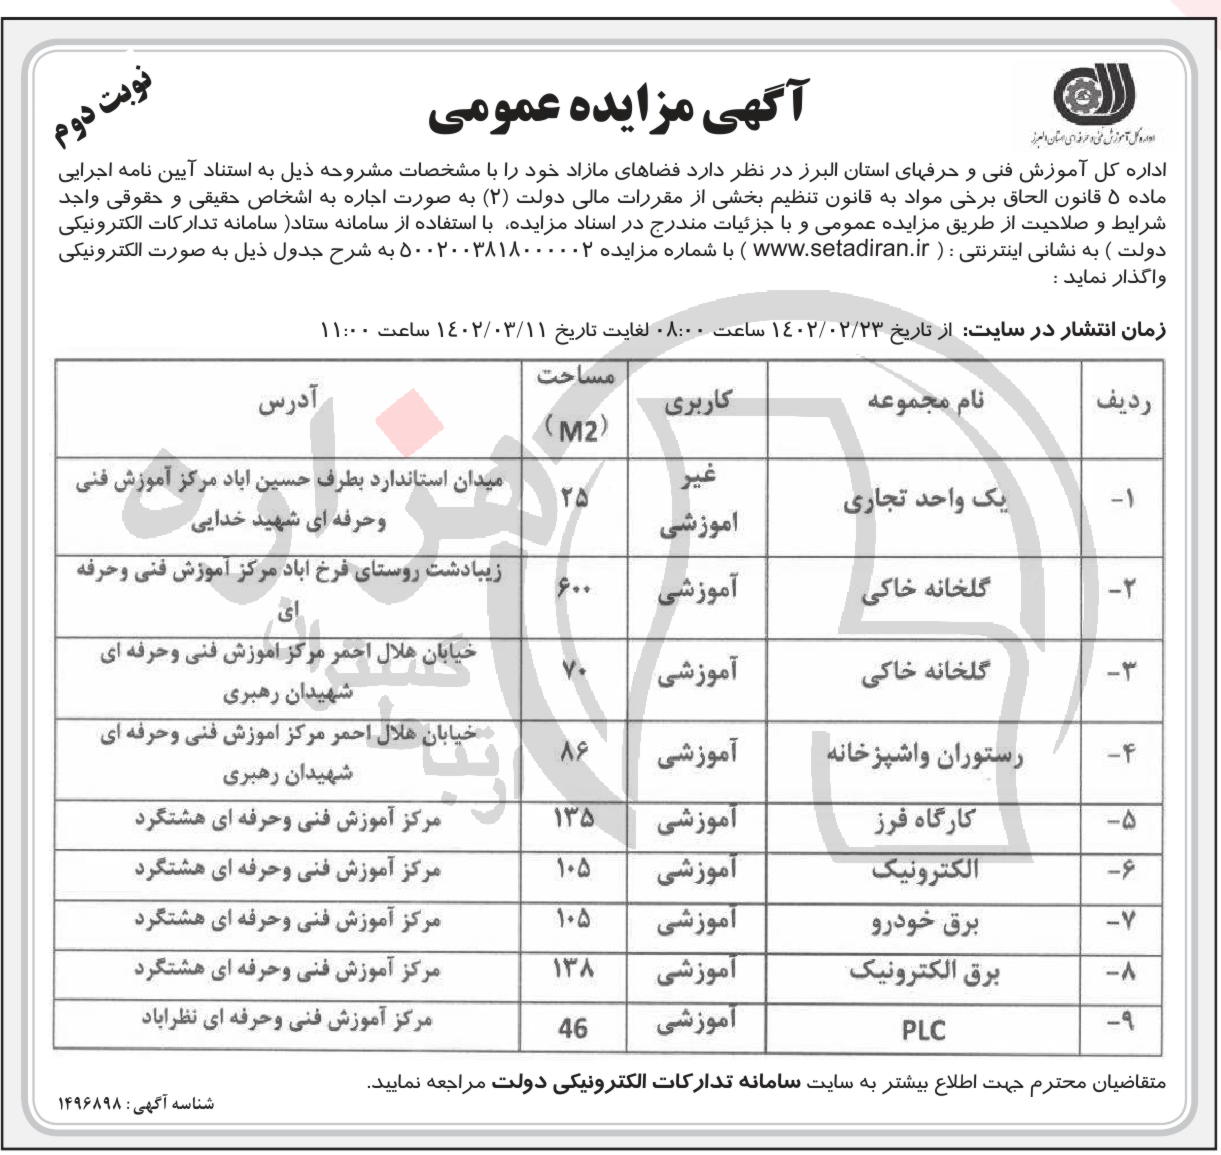 نوبت دوم
آگهی مزایده عمومی
اداره کل آموزش فنی و حرفه ای استان البرز
اداره کل آموزش فنی و حرفهای استان البرز در نظر دارد فضاهای مازاد خود را با مشخصات مشروحه ذیل به استناد آیین نامه اجرایی
ماده ۵ قانون الحاق برخی مواد به قانون تنظیم بخشی از مقررات مالی دولت (۲) به صورت اجاره به اشخاص حقیقی و حقوقی واجد
شرایط و صلاحیت از طریق مزایده عمومی و با جزئیات مندرج در اسناد مزایده، با استفاده از سامانه ستاد( سامانه تدارکات الکترونیکی
دولت ) به نشانی اینترنتی : ( www.setadiran.ir ) با شماره مزایده ۵۰۰۲۰۰۳۸۱۸۰۰۰۰۰۲ به شرح جدول ذیل به صورت الکترونیکی
واگذار نماید :
زمان انتشار در سایت: از تاریخ ۱٤۰۲/۰۲/۲۳ ساعت ۰۸:۰۰ لغایت تاریخ ۱٤۰۲/۰۳/۱۱ ساعت ۱۱:۰۰
ردیف نام مجموعه کاربری مساحت (M2) آدرس
۱- یک واحد تجاری غیر اموزشی ۲۵ میدان استاندارد بطرف حسین اباد مرکز آموزش فنی
وحرفه ای شهید خدایی
۲- گلخانه خاکی آموزشی ۶۰۰ زیبادشت روستای فرخ اباد مرکز آموزش فنی وحرفه
ای
۳- گلخانه خاکی آموزشی ۷۰ خیابان هلال احمر مرکز اموزش فنی وحرفه ای
شهیدان رهبری
۴- رستوران واشپزخانه آموزشی ۸۶ خیابان هلال احمر مرکز اموزش فنی وحرفه ای
شهیدان رهبری
۵- کارگاه فرز آموزشی ۱۳۵ مرکز آموزش فنی وحرفه ای هشتگرد
۶- الکترونیک آموزشی ۱۰۵ مرکز آموزش فنی وحرفه ای هشتگرد
۷- برق خودرو آموزشی ۱۰۵ مرکز آموزش فنی وحرفه ای هشتگرد
۸- برق الکترونیک آموزشی ۱۳۸ مرکز آموزش فنی وحرفه ای هشتگرد
۹- PLC آموزشی 46 مرکز آموزش فنی وحرفه ای نظراباد
متقاضیان محترم جهت اطلاع بیشتر به سایت سامانه تدارکات الکترونیکی دولت مراجعه نمایید.
شناسه آگهی : ۱۴۹۶۸۹۸
هزاره